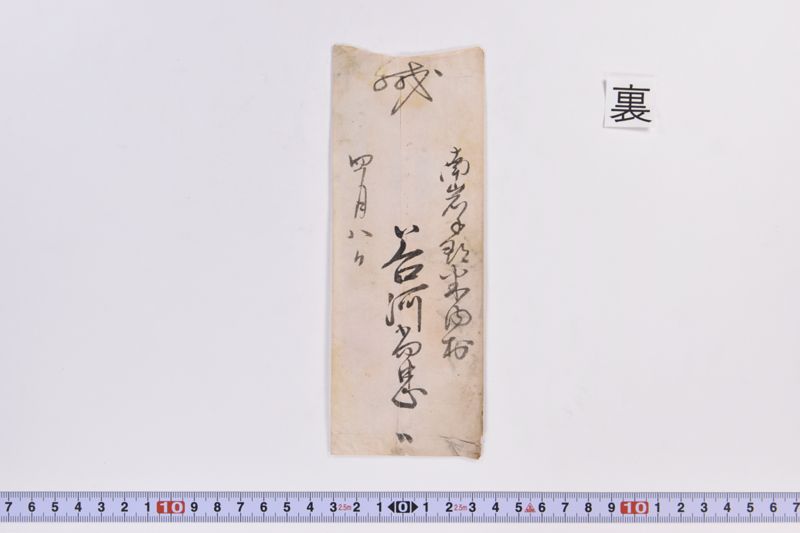 緘
南岩手郡米内村
谷河尚忠
四月八日
裏
7 6 5 4 3 2 1 10 9 8 7 6 5 4 3 2.5m 2 1 0 1 2 2.5m 3 4 5 6 7 8 9 10 1 2 3 4 5 6 7